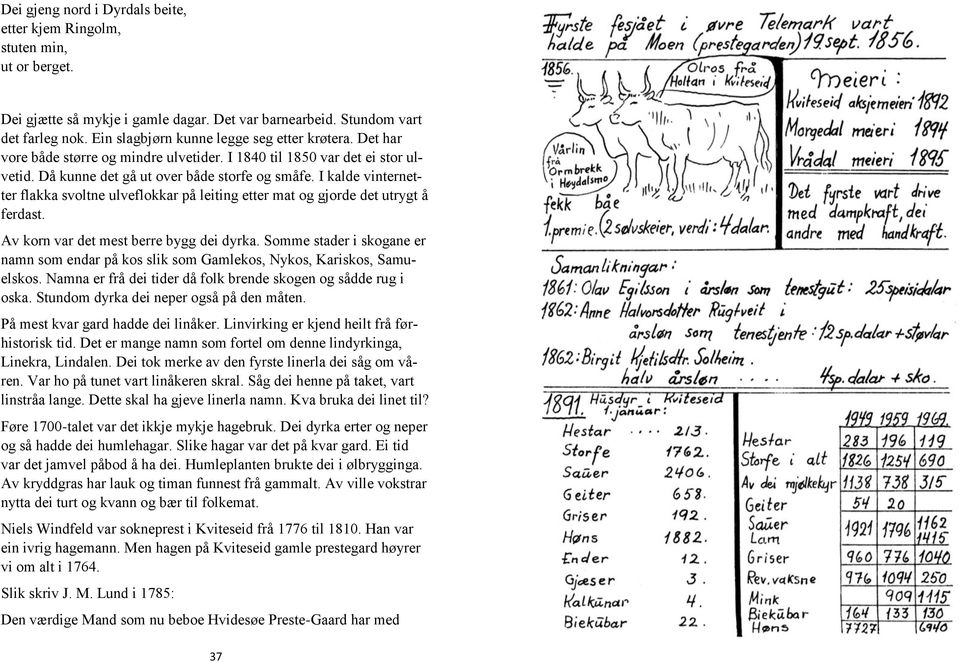 Dei gjeng nord i Dyrdals beite,
etter kjem Ringolm,
stuten min,
ut or berget.
Dei gjætte så mykje i gamle dagar. Det var barnearbeid. Stundom vart
det farleg nok. Ein slagbjørn kunne legge seg etter krøtera. Det har
vore både større og mindre ulvetider. I 1840 til 1850 var det ei stor ul-
vetid. Då kunne det gå ut over både storfe og småfe. I kalde vinternet-
ter flakka svoltne ulveflokkar på leiting etter mat og gjorde det utrygt å
ferdast.
Av korn var det mest berre bygg dei dyrka. Somme stader i skogane er
namn som endar på kos slik som Gamlekos, Nykos, Kariskos, Samu-
elskos. Namna er frå dei tider då folk brende skogen og sådde rug i
oska. Stundom dyrka dei neper også på den måten.
På mest kvar gard hadde dei linåker. Linvirking er kjend heilt frå før-
historisk tid. Det er mange namn som fortel om denne lindyrkinga,
Linekra, Lindalen. Dei tok merke av den fyrste linerla dei såg om vå-
ren. Var ho på tunet vart linåkeren skral. Såg dei henne på taket, vart
linstråa lange. Dette skal ha gjeve linerla namn. Kva bruka dei linet til?
Føre 1700-talet var det ikkje mykje hagebruk. Dei dyrka erter og neper
og så hadde dei humlehagar. Slike hagar var det på kvar gard. Ei tid
var det jamvel påbod å ha dei. Humleplanten brukte dei i ølbrygginga.
Av kryddgras har lauk og timan funnest frå gammalt. Av ville vokstrar
nytta dei turt og kvann og bær til folkemat.
Niels Windfeld var sokneprest i Kviteseid frå 1776 til 1810. Han var
ein ivrig hagemann. Men hagen på Kviteseid gamle prestegard høyrer
vi om alt i 1764.
Slik skriv J. M. Lund i 1785:
Den værdige Mand som nu beboe Hvidesøe Preste-Gaard har med
37
Fyrste fesjået i øvre Telemark vart
halde på Moen (prestegarden) 19. sept. 1856.
1856.
Olros frå
Holtan i Kviteseid
Vårlin
frå
Ormbrekk
i Høydalsmo
fekk båe
1. premie. (2 sølvskeier, verdi: 4 dalar.
Meieri:
Kviteseid aksjemeieri 1892
Morgedal meieri 1894
Vrådal meieri 1895
Det fyrste vart drive
med dampkraft, dei
andre med handkraft.
Samanlikningar:
1861: Olav Egilsson i årsløn som tenestgut: 25 speisidalar
1862: Anne Halvorsdotter Rugtveit i
årsløn som tenestjente: 12 sp.dalar + støvlar
1862: Birgit Kjetilsdtr. Solheim.
halv årsløn .... 4sp. dalar + sko.
1891. Husdyr i Kviteseid
1. januar:
Hestar .... 213.
Storfe 1762.
Sauer 2406.
Geiter 658.
Griser 192.
Høns 1882.
Ender 12.
Gjæser 3.
Kalkunar 4.
Biekubar 22.
1949 1959 1969.
Hestar 283 196 119
Storfe i alt 1826 1254 690
Av dei mjølkekyr 1138 738 315
Geiter 54 20
Sauer 1921 1796 1162
Lam 1415
Griser 960 776 1040
Rev. vaksne 976 1094 250
Mink 909 1115
Biekubar 164 133 130
Høns 7727 6940